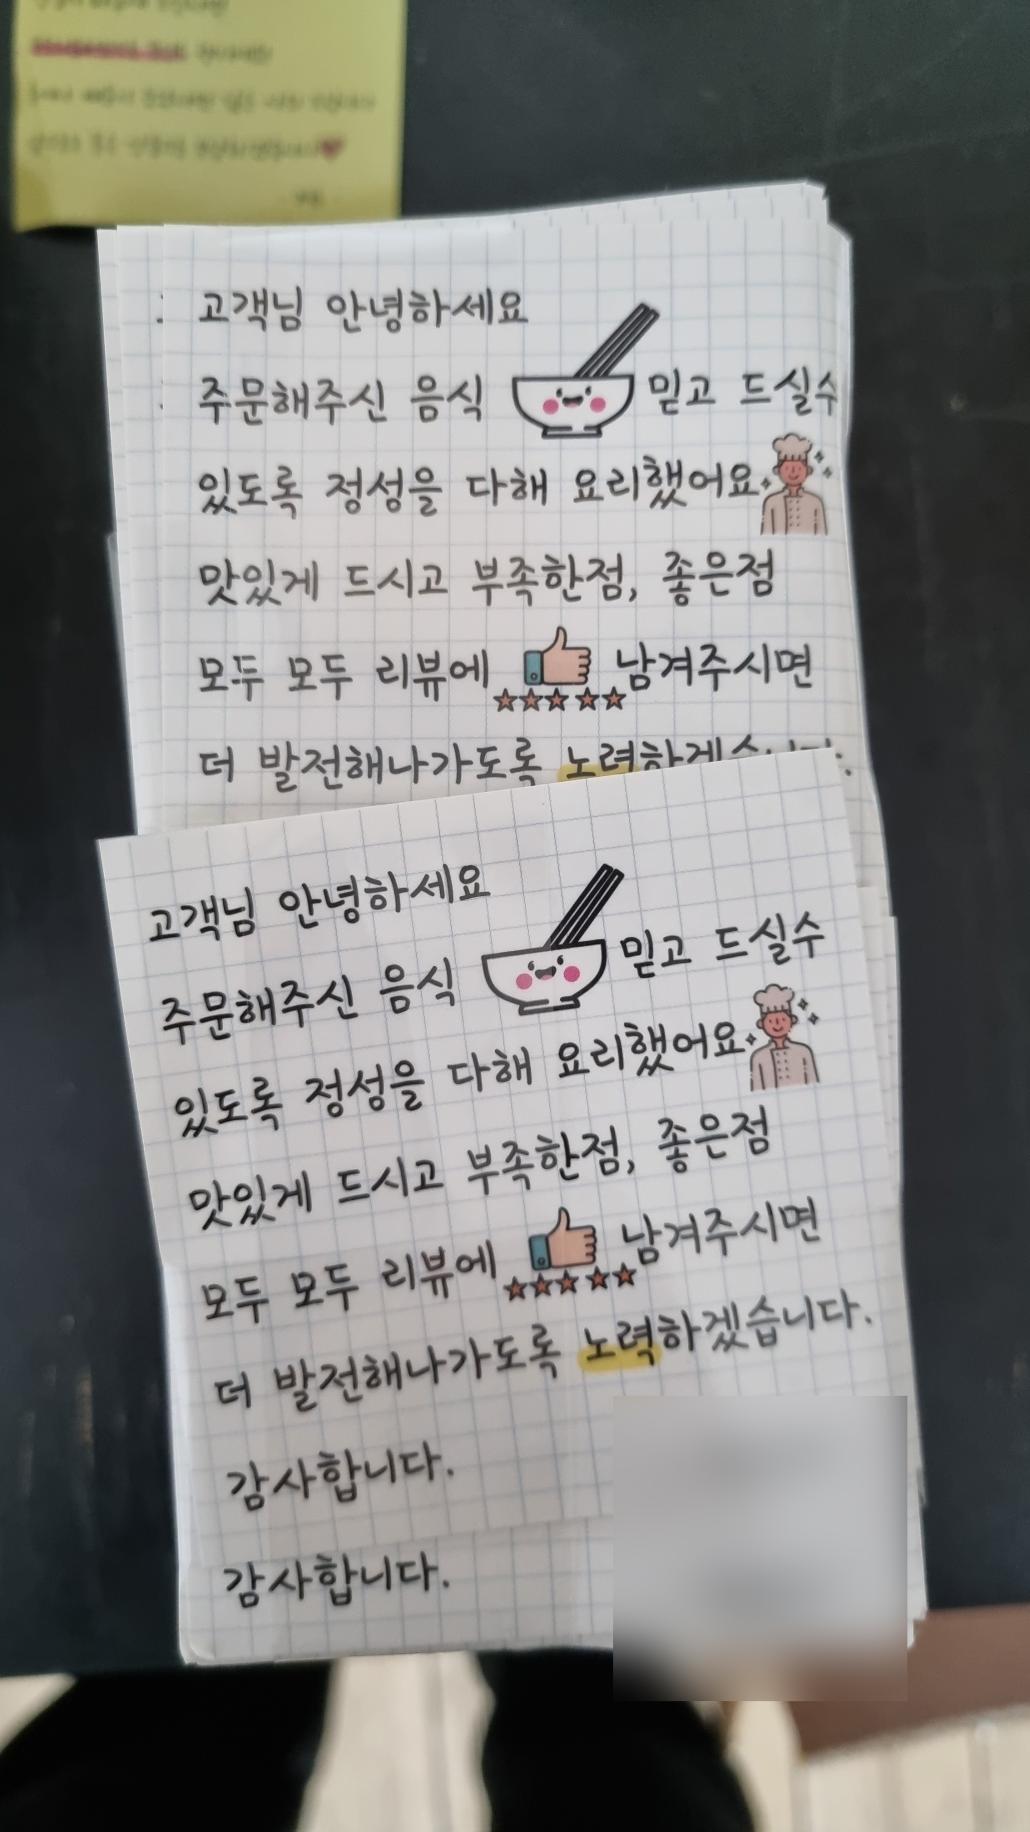 고객님 안녕하세요
주문해주신 음식 믿고 드실수
있도록 정성을 다해 요리했어요
맛있게 드시고 부족한점, 좋은점
모두 모두 리뷰에 남겨주시면
더 발전해나가도록 노력하겠습니다.
고객님 안녕하세요
주문해주신 음식 믿고 드실수
있도록 정성을 다해 요리했어요
맛있게 드시고 부족한점, 좋은점
모두 모두 리뷰에 남겨주시면
더 발전해나가도록 노력하겠습니다.
감사합니다.
감사합니다.